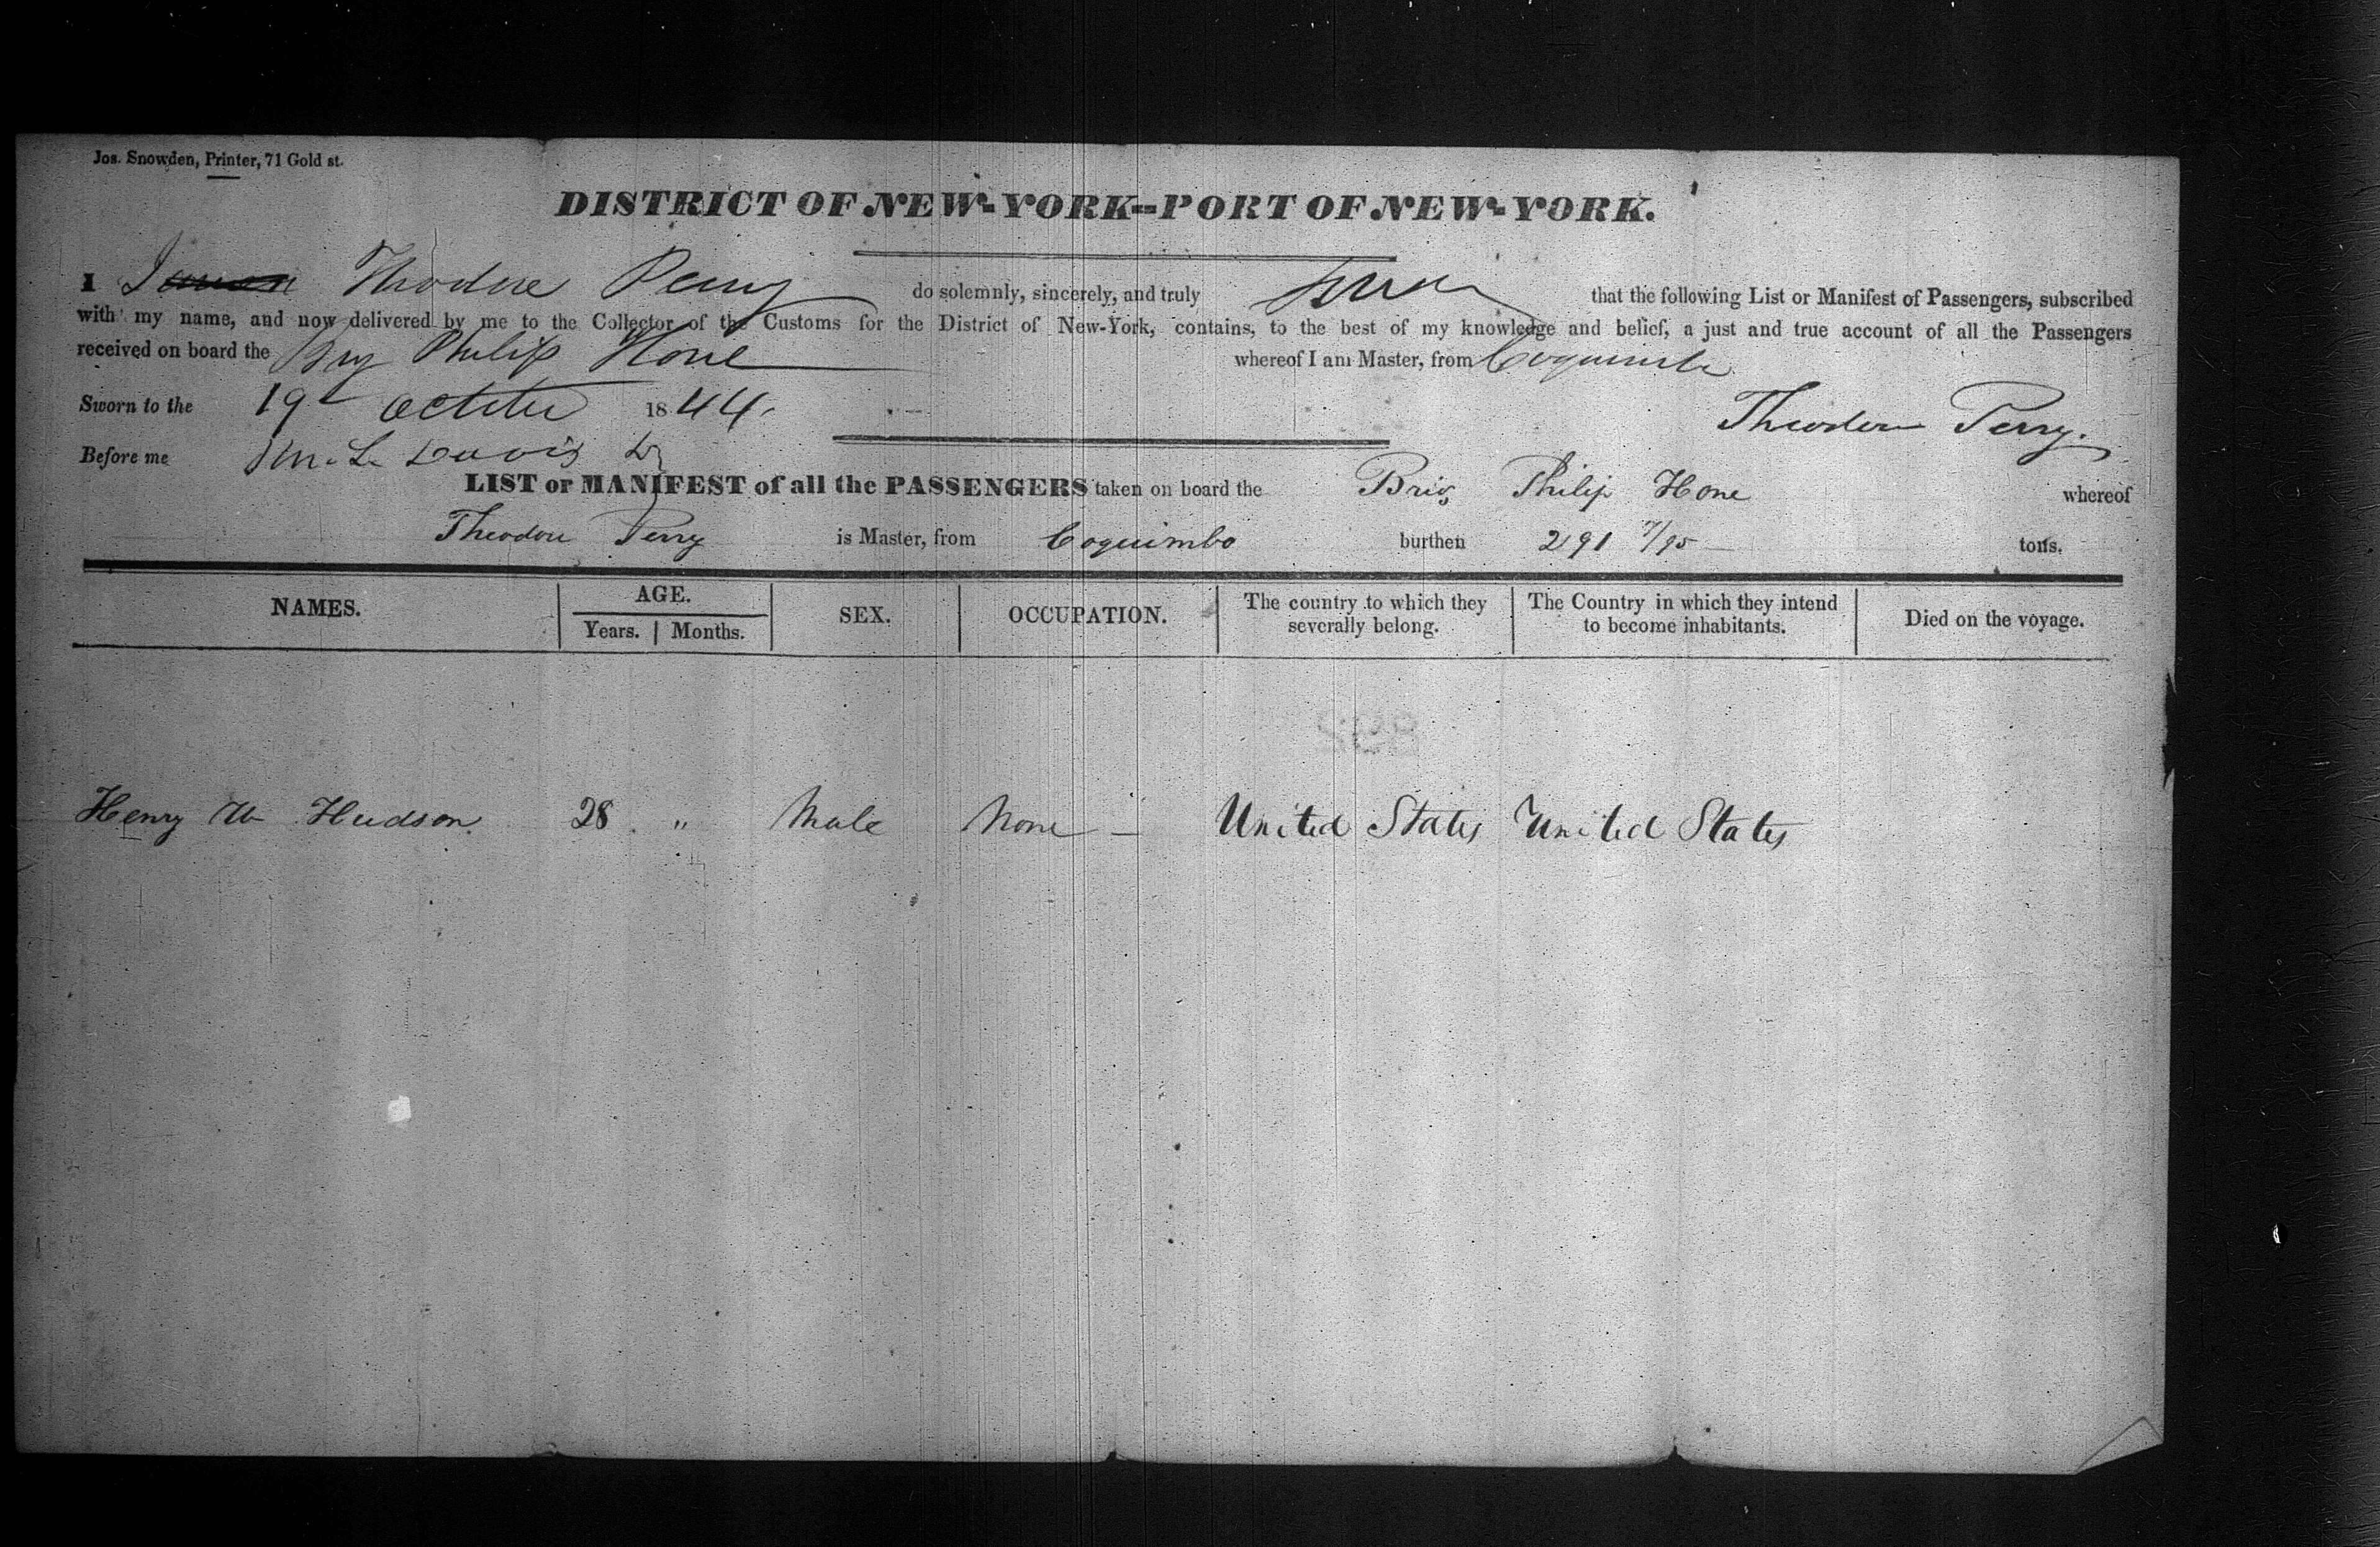 Jos. Snowden, Printer, 71 Gold st.
DISTRICT OF NEW-YORK--PORT OF NEW-YORK.
I Theodore Perry do solemnly, sincerely, and truly swear that the following List or Manifest of Passengers, subscribed
with my name, and now delivered by me to the Collector of the Customs for the District of New-York, contains, to the best of my knowledge and belief, a just and true account of all the Passengers
received on board the Brig Philip Hone whereof I am Master, from Coquimbo
Sworn to the 19 October 1844.
Theodore Perry.
Before me Davis
LIST or MANIFEST of all the PASSENGERS taken on board the Brig Philip Hone whereof
Theodore Perry is Master, from Coquimbo burthen 291 7/95 tons.
NAMES. AGE. SEX. OCCUPATION. The country to which they severally belong. The Country in which they intend to become inhabitants. Died on the voyage.
Years. Months.
Henry W Hudson. 28 " Male None — United States United States